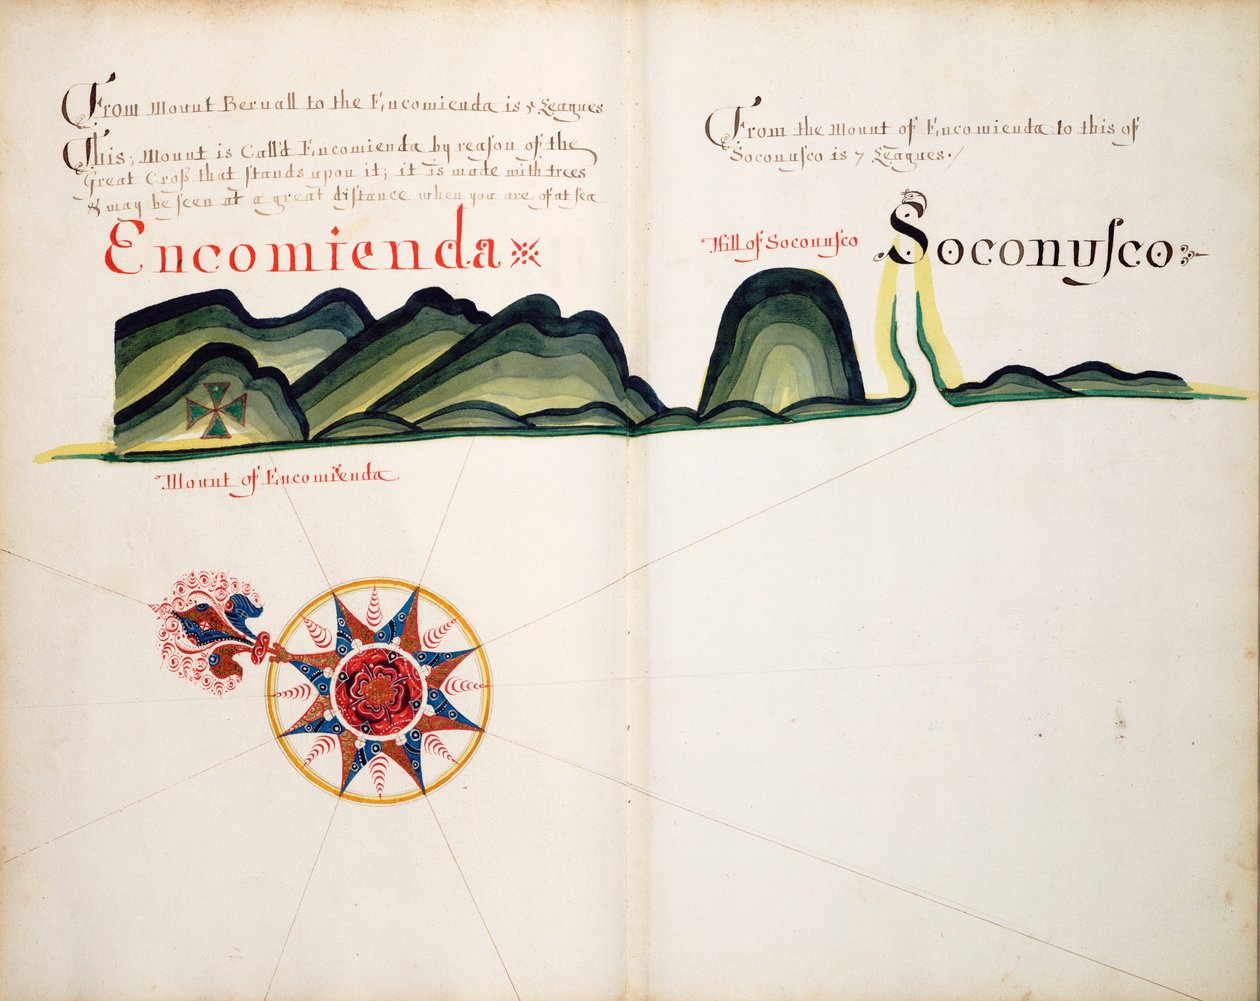 From Mount Bernall to the Encomienda is 5 Leagues
This; Mount is Call'd Encomienda by reaſon of the
Great Croſs that ſtands upon it; it is made with trees
& may be ſeen at a great diſtance when you are of at sea
Encomienda
Mount of Encomienda
From the Mount of Encomienda to this of
Soconuſco is 7 Leagues./
Hill of Soconuſco
Soconuſco